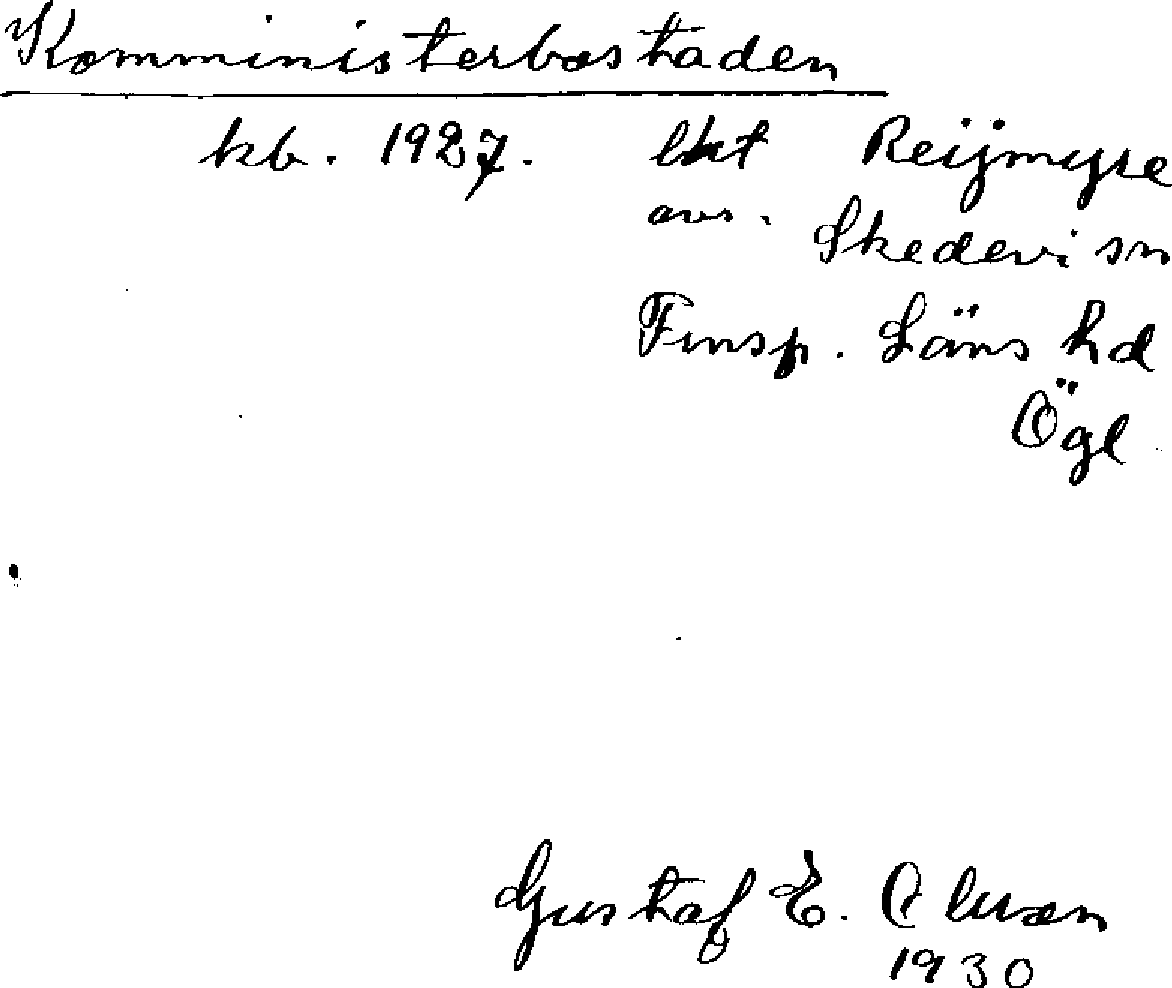 Komministerbostaden
kb. 1927. lht Reijmyre
avs. Skedevi sn
Finsp. Läns hd
Ögl
Gustaf E. Olsson
1930